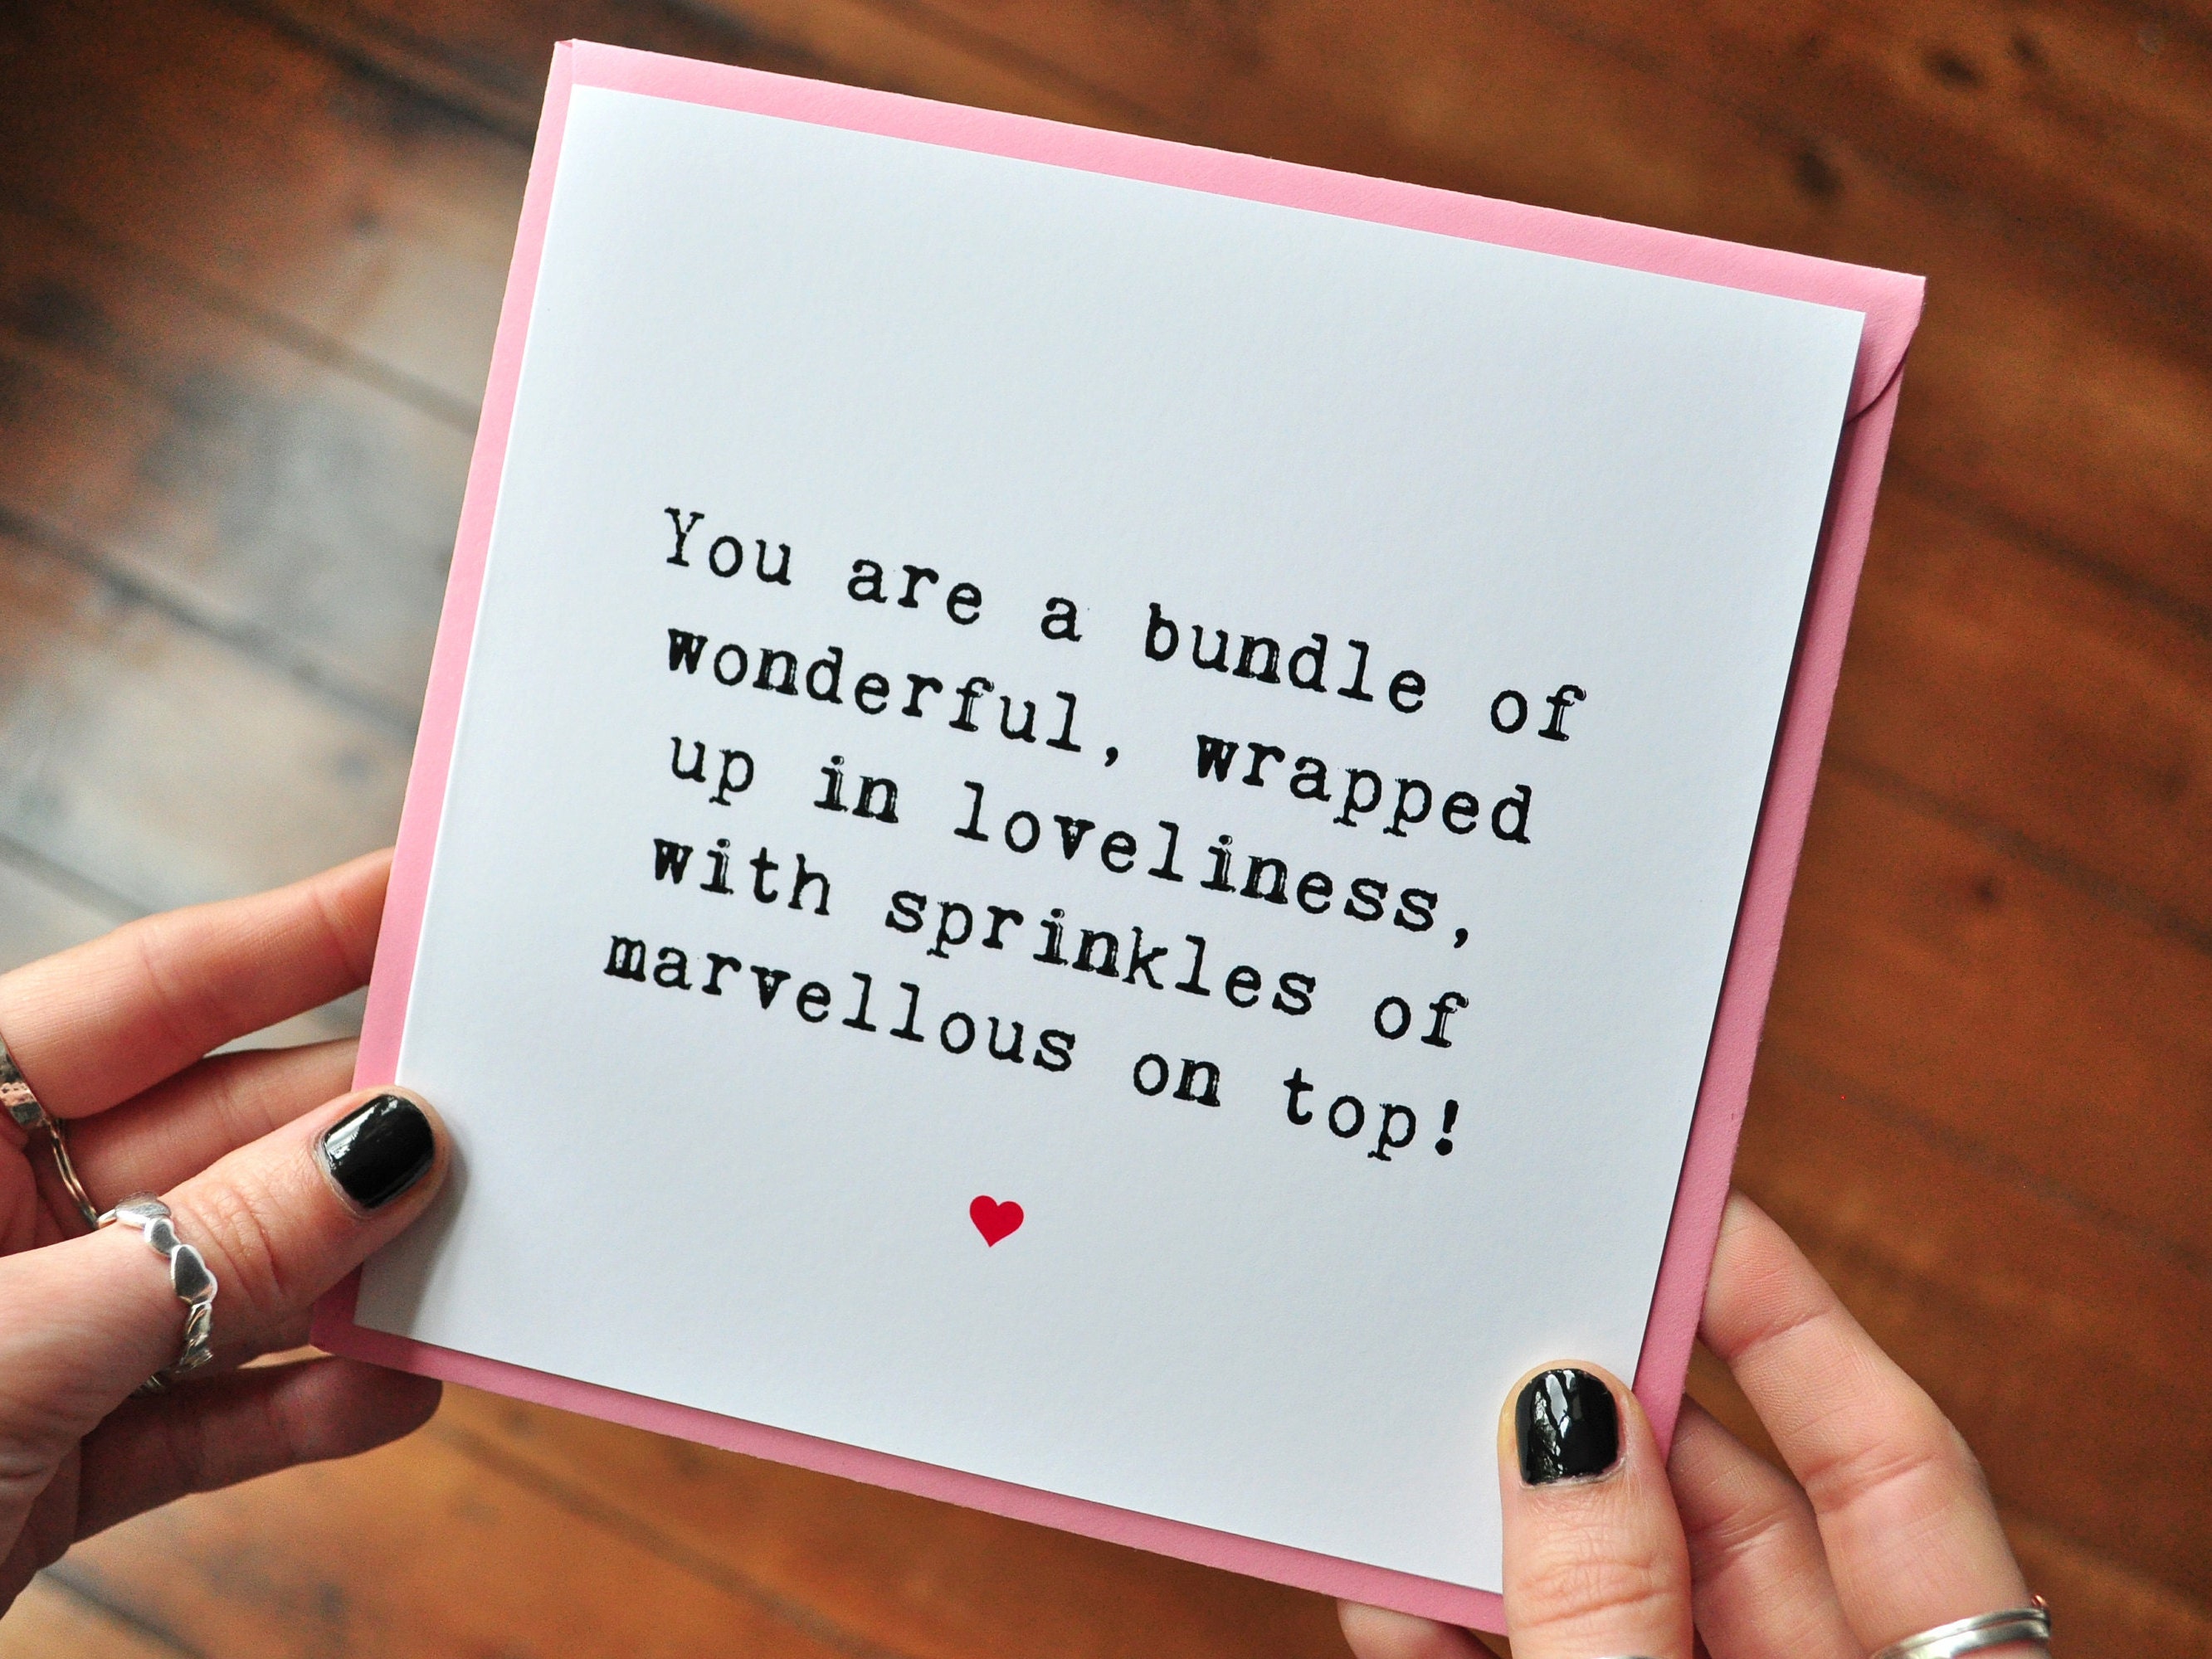 You are a bundle of
wonderful, wrapped
up in loveliness,
with sprinkles of
marvellous on top!